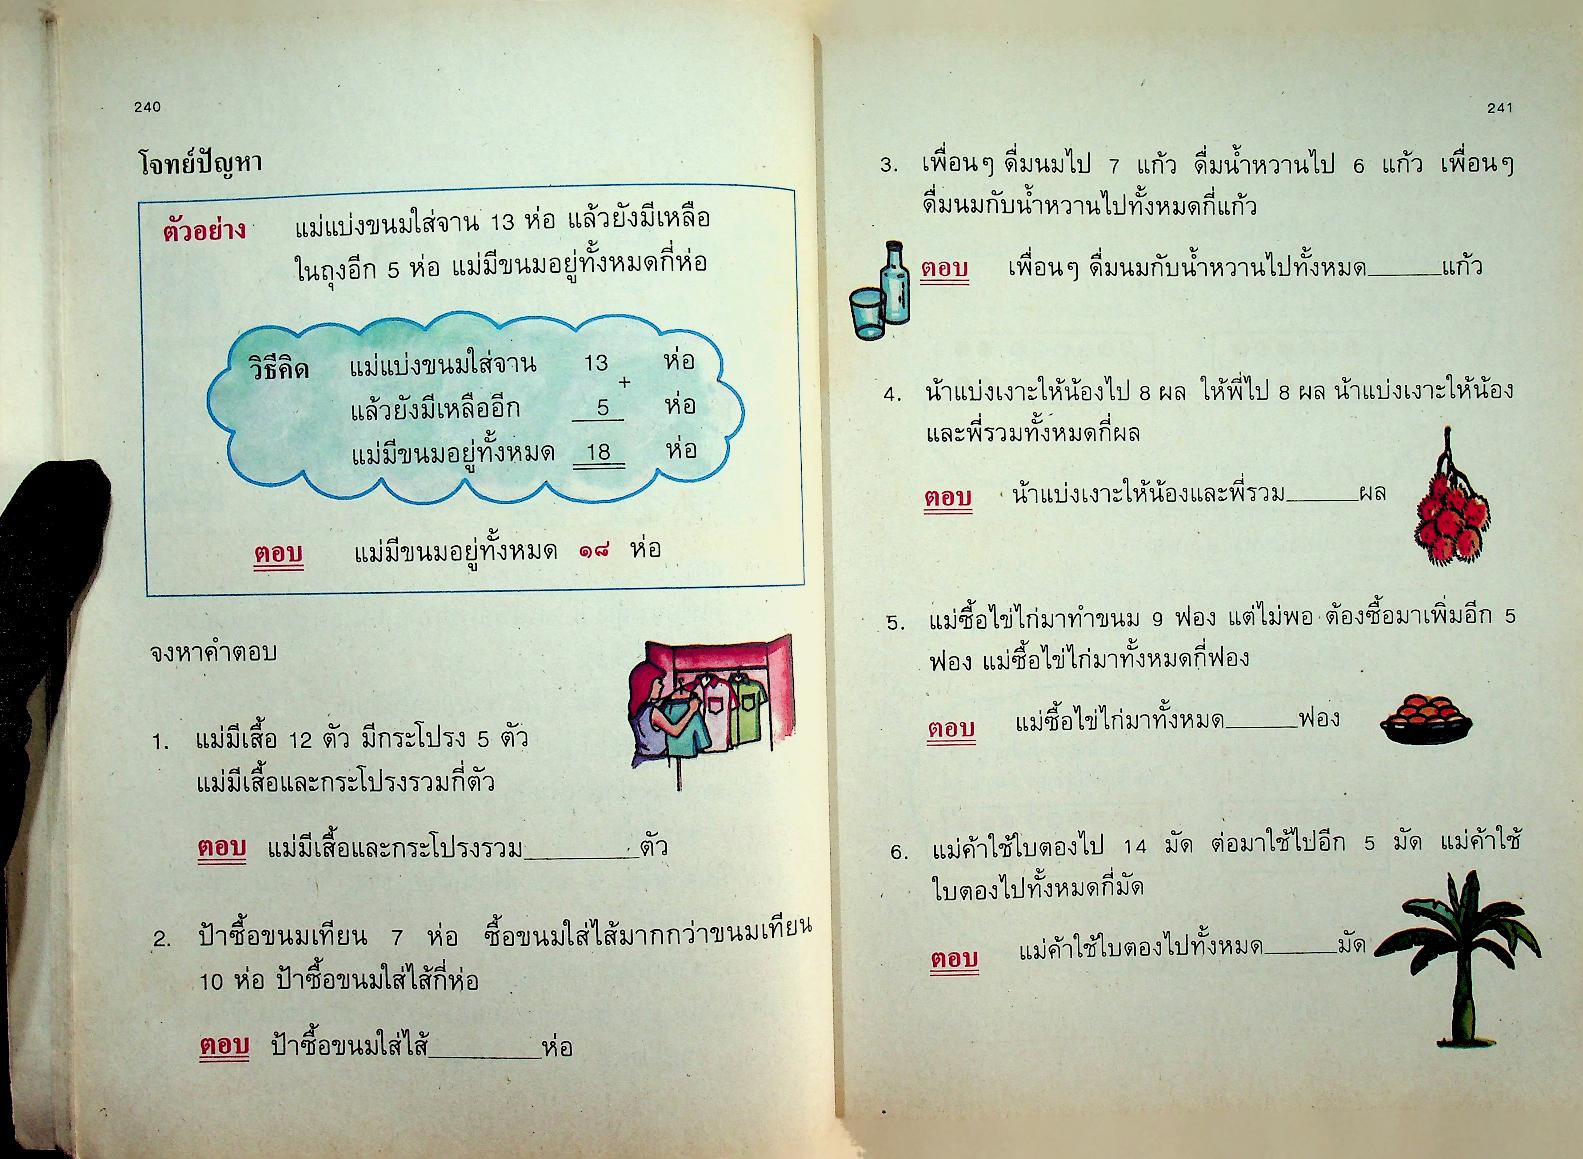 240
โจทย์ปัญหา
ตัวอย่าง แม่แบ่งขนมใส่จาน 13 ห่อ แล้วยังมีเหลือ
ในถุงอีก 5 ห่อ แม่มีขนมอยู่ทั้งหมดกี่ห่อ
วิธีคิด แม่แบ่งขนมใส่จาน 13 ห่อ
+
แล้วยังมีเหลืออีก 5 ห่อ
แม่มีขนมอยู่ทั้งหมด 18 ห่อ
ตอบ แม่มีขนมอยู่ทั้งหมด ๑๘ ห่อ
จงหาคำตอบ
1. แม่มีเสื้อ 12 ตัว มีกระโปรง 5 ตัว
แม่มีเสื้อและกระโปรงรวมกี่ตัว
ตอบ แม่มีเสื้อและกระโปรงรวม________ตัว
2. ป้าซื้อขนมเทียน 7 ห่อ ซื้อขนมใส่ไส้มากกว่าขนมเทียน
10 ห่อ ป้าซื้อขนมใส่ไส้กี่ห่อ
ตอบ ป้าซื้อขนมใส่ไส้________ห่อ
241
3. เพื่อนๆ ดื่มนมไป 7 แก้ว ดื่มน้ำหวานไป 6 แก้ว เพื่อนๆ
ดื่มนมกับน้ำหวานไปทั้งหมดกี่แก้ว
ตอบ เพื่อนๆ ดื่มนมกับน้ำหวานไปทั้งหมด_____แก้ว
4. น้าแบ่งเงาะให้น้องไป 8 ผล ให้พี่ไป 8 ผล น้าแบ่งเงาะให้น้อง
และพี่รวมทั้งหมดกี่ผล
ตอบ น้าแบ่งเงาะให้น้องและพี่รวม_____ผล
5. แม่ซื้อไข่ไก่มาทำขนม 9 ฟอง แต่ไม่พอ ต้องซื้อมาเพิ่มอีก 5
ฟอง แม่ซื้อไข่ไก่มาทั้งหมดกี่ฟอง
ตอบ แม่ซื้อไข่ไก่มาทั้งหมด_____ฟอง
6. แม่ค้าใช้ใบตองไป 14 มัด ต่อมาใช้ไปอีก 5 มัด แม่ค้าใช้
ใบตองไปทั้งหมดกี่มัด
ตอบ แม่ค้าใช้ใบตองไปทั้งหมด_____มัด